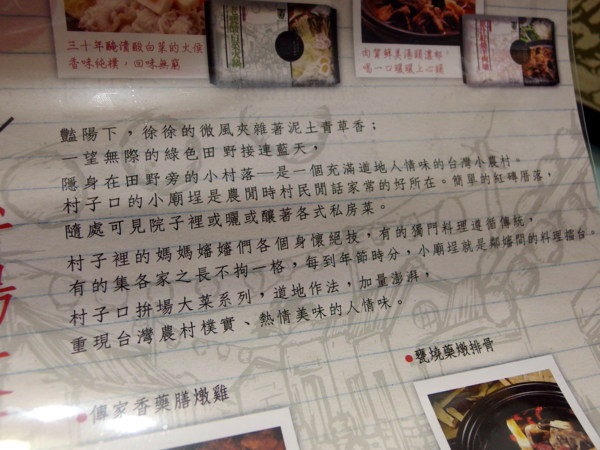 三十年醃漬酸白菜的火侯
香味純樸，回味無窮
肉質鮮美湯頭濃郁
喝一口暖暖上心頭
豔陽下，徐徐的微風夾雜著泥土青草香；
一望無際的綠色田野接連藍天，
隱身在田野旁的小村落—是一個充滿道地人情味的台灣小農村。
村子口的小廟埕是農閒時村民閒話家常的好所在。簡單的紅磚厝落，
隨處可見院子裡或曬或釀著各式私房菜。
村子裡的媽媽嬸嬸們各個身懷絕技，有的獨門料理遵循傳統，
有的集各家之長不拘一格，每到年節時分，小廟埕就是鄰嬸間的料理擂台。
村子口拚場大菜系列，道地作法，加量澎湃，
重現台灣農村樸實、熱情美味的人情味。
●傳家香藥膳燉雞
●甕燒藥燉排骨